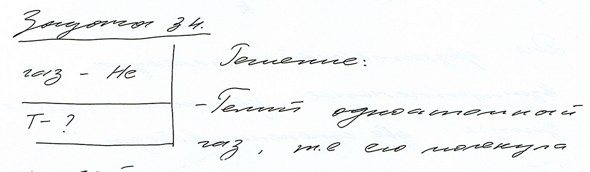 Задача 34.
газ - He
Решение:
T - ?
- Гелий одноатомный
газ, т.е его молекула